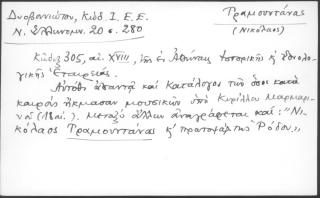 Δυοβουνιώτου, Κώδ. Ι. Ε. Ε.
Ν. Ἑλληνομν. 20 σ. 280
Τραμουντάνας
(Νικόλαος)
Κῶδιξ 305, αἰ. XVIII, τῆς ἐν Ἀθήναις Ἱστορικῆς κ' Ἐθνολο-
γικῆς Ἑταιρείας.
Αὐτόθι ἀπαντᾷ καὶ κατάλογος τῶν ὅσοι κατὰ
καιροὺς ἤκμασαν μουσικῶν ὑπὸ Κυρίλλου Μαρμαρι-
νοῦ (18 αἰ.). Μεταξὺ ἄλλων ἀναγράφεται καί: "Νι-
κόλαος Τραμουντάνας κ' πρωτοψάλτης Ῥόδου",